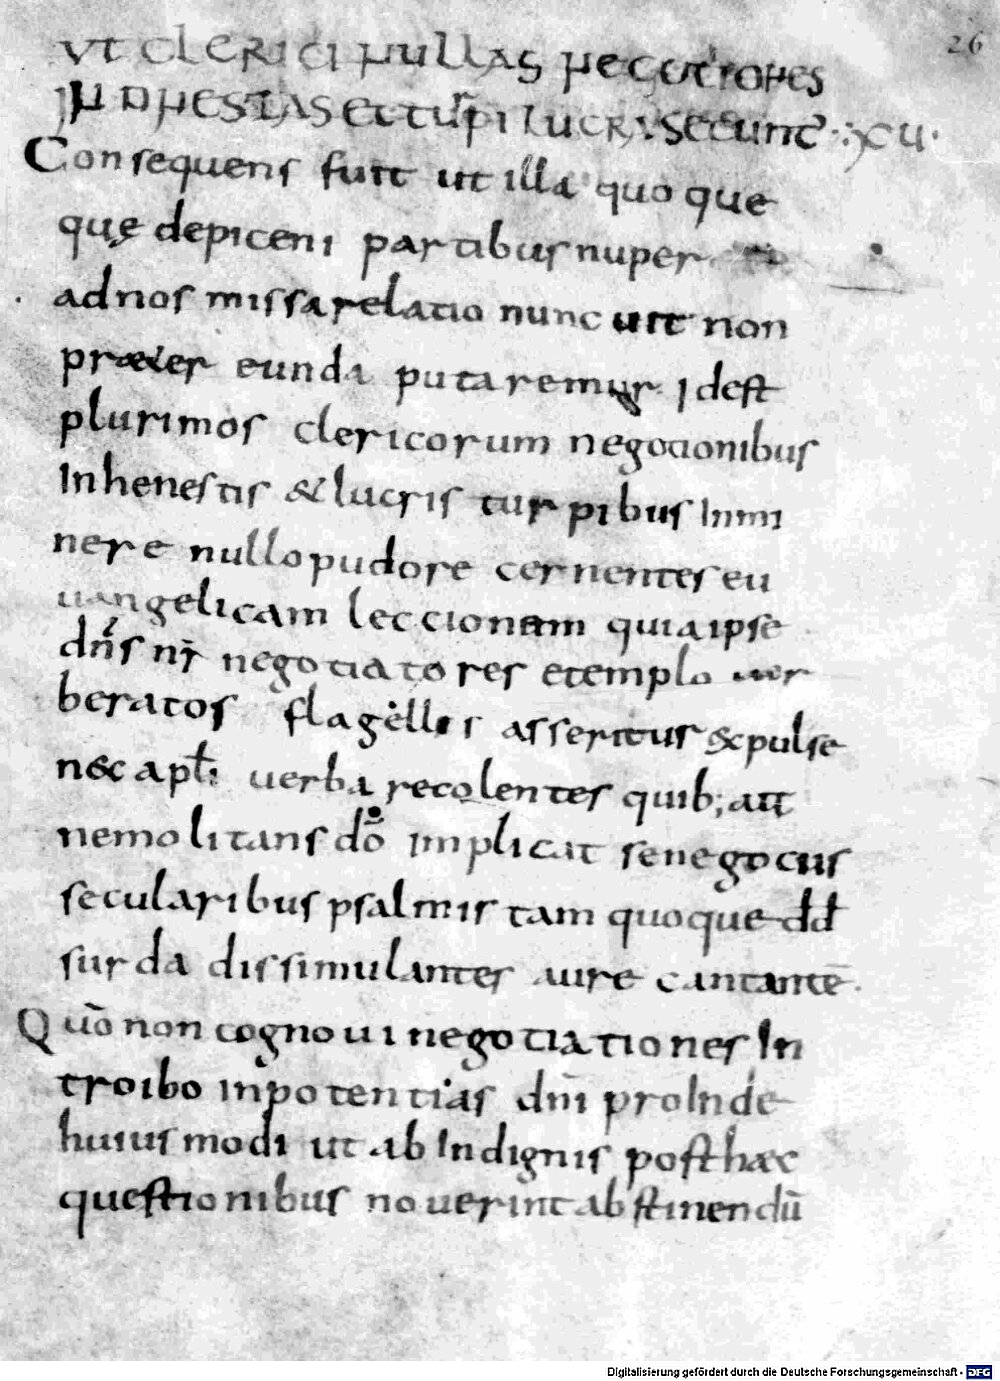 26
UT CLERICI NULLAS NEGOTIONES
INHNESTAS ET TURPI LUCRA SECUNT XCU
Consequens fuit ut illa quoque
quę depiceni partibus nuper
ad nos missa relatio nunciuit non
præter eunda putaremur Idest
plurimos clericorum negotionibus
Inhenestis & lucris turpibus Inmi
nere nullo pudore cernentes eu
uangelicam leccionem quia ipse
dn̄s nr̄ negotiatores etemplo uer
beratos flagellis asseritus & pulse
n&c apłi uerba recolentes quib; ait
nemo litans dō implicat se negocus
secularibus psalmis tam quoque dd̄
surda dissimulantes aure cantantē
Quō non cognoui negotiationes In
troibo inpotentias dnī proInde
huiusmodi ut ab Indignis posthæc
questionibus nouerint abstinendū
Digitalisierung gefördert durch die Deutsche Forschungsgemeinschaft - DFG